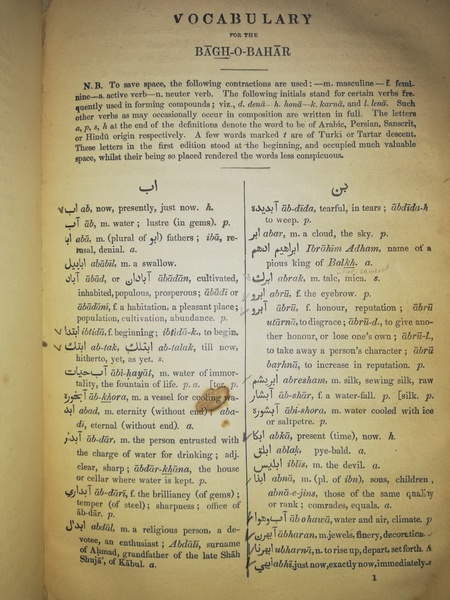 VOCABULARY
FOR THE
BĀGH-O-BAHĀR
N.B. To save space, the following contractions are used :—m. masculine—f. femi-
nine—a. active verb—n. neuter verb. The following initials stand for certain verbs fre-
quently used in forming compounds ; viz., d. denā—h. honā—k. karnā, and l. lenā. Such
other verbs as may occasionally occur in composition are written in full. The letters
a, p, s, h at the end of the definitions denote the word to be of Arabic, Persian, Sanscrit,
or Hindū origin respectively. A few words marked t are of Turki or Tartar descent.
These letters in the first edition stood at the beginning, and occupied much valuable
space, whilst their being so placed rendered the words less conspicuous.
اب
اب ab, now, presently, just now. h.
آب āb, m. water ; lustre (in gems). p.
ابا abā, m. (plural of ابو) fathers ; ibā, re-
fusal, denial. a.
ابابيل abābīl, m. a swallow.
آباد ābād, or آبادان ābādān, cultivated,
inhabited, populous, prosperous ; ābādī or
ābādānī, f. a habitation, a pleasant place ;
population, cultivation, abundance. p.
ابتدا ibtidā, f. beginning ; ibtidā-k., to begin.
ابتك ab-tak, ابتلك ab-talak, till now,
hitherto, yet, as yet. s.
آب حيات āb-i-ḥayāt, m. water of immor-
tality, the fountain of life. p. a. [ter.
آبخوره āb-khora, m. a vessel for cooling wa-
ابد abad, m. eternity (without end) ; aba-
dī, eternal (without end). a.
آبدار āb-dār, m. the person entrusted with
the charge of water for drinking ; adj.
clear, sharp ; ābdār-khāna, the house
or cellar where water is kept. p.
آبداري āb-dārī, f. the brilliancy (of gems) ;
temper (of steel) ; sharpness ; office of
āb-dār. p.
ابدال abdāl, m. a religious person, a de-
votee, an enthusiast ; Abdālī, surname
of Aḥmad, grandfather of the late Shāh
Shujā', of Kābul. a.
آبديده āb-dīda, tearful, in tears ; ābdīda-h
to weep. p.
ابر abar, m. a cloud, the sky. p.
ابراهيم ادهم Ibrāhīm Adham, name of a
pious king of Balkh. a.
ابرك abrak, m. talc, mica. s.
ابرو abrū, f. the eyebrow. p.
آبرو ābrū, f. honour, reputation ; ābrū
utārnā, to disgrace ; ābrū-d., to give ano-
ther honour, or lose one's own ; ābrū-l.,
to take away a person's character ; ābrū
baṛhnā, to increase in reputation. p.
ابريشم abresham, m. silk, sewing silk, raw
آبشار āb-shār, f. a water-fall. p. [silk. p.
آبشوره ābi-shora, m. water cooled with ice
or saltpetre. p.
ابكا abkā, present (time), now. h.
ابلق ablaḳ, pye-bald. a.
ابليس iblīs, m. the devil. a.
ابنا abnā, m. (pl. of ibn), sons, children,
abnā-e-jins, those of the same quality
or rank ; comrades, equals. a.
آب وهوا āb o hawā, water and air, climate. p.
ابهرن ābharan, m. jewels, finery, decoration.
ابهرنا ubharnā, n. to rise up, depart, set forth. h
ابهي abhī, just now, exactly now, immediately. s
1